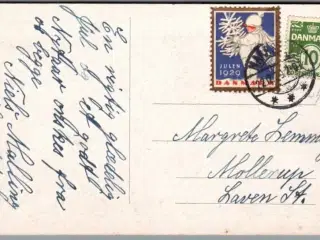 En rigtig glædelig
Jul og et godt
Nytaar ønskes fra
os begge
Niels Malling
JULEN
1929
DANMARK
DANMARK
10
Margrete Lemmi
Mollerup
Laven St.